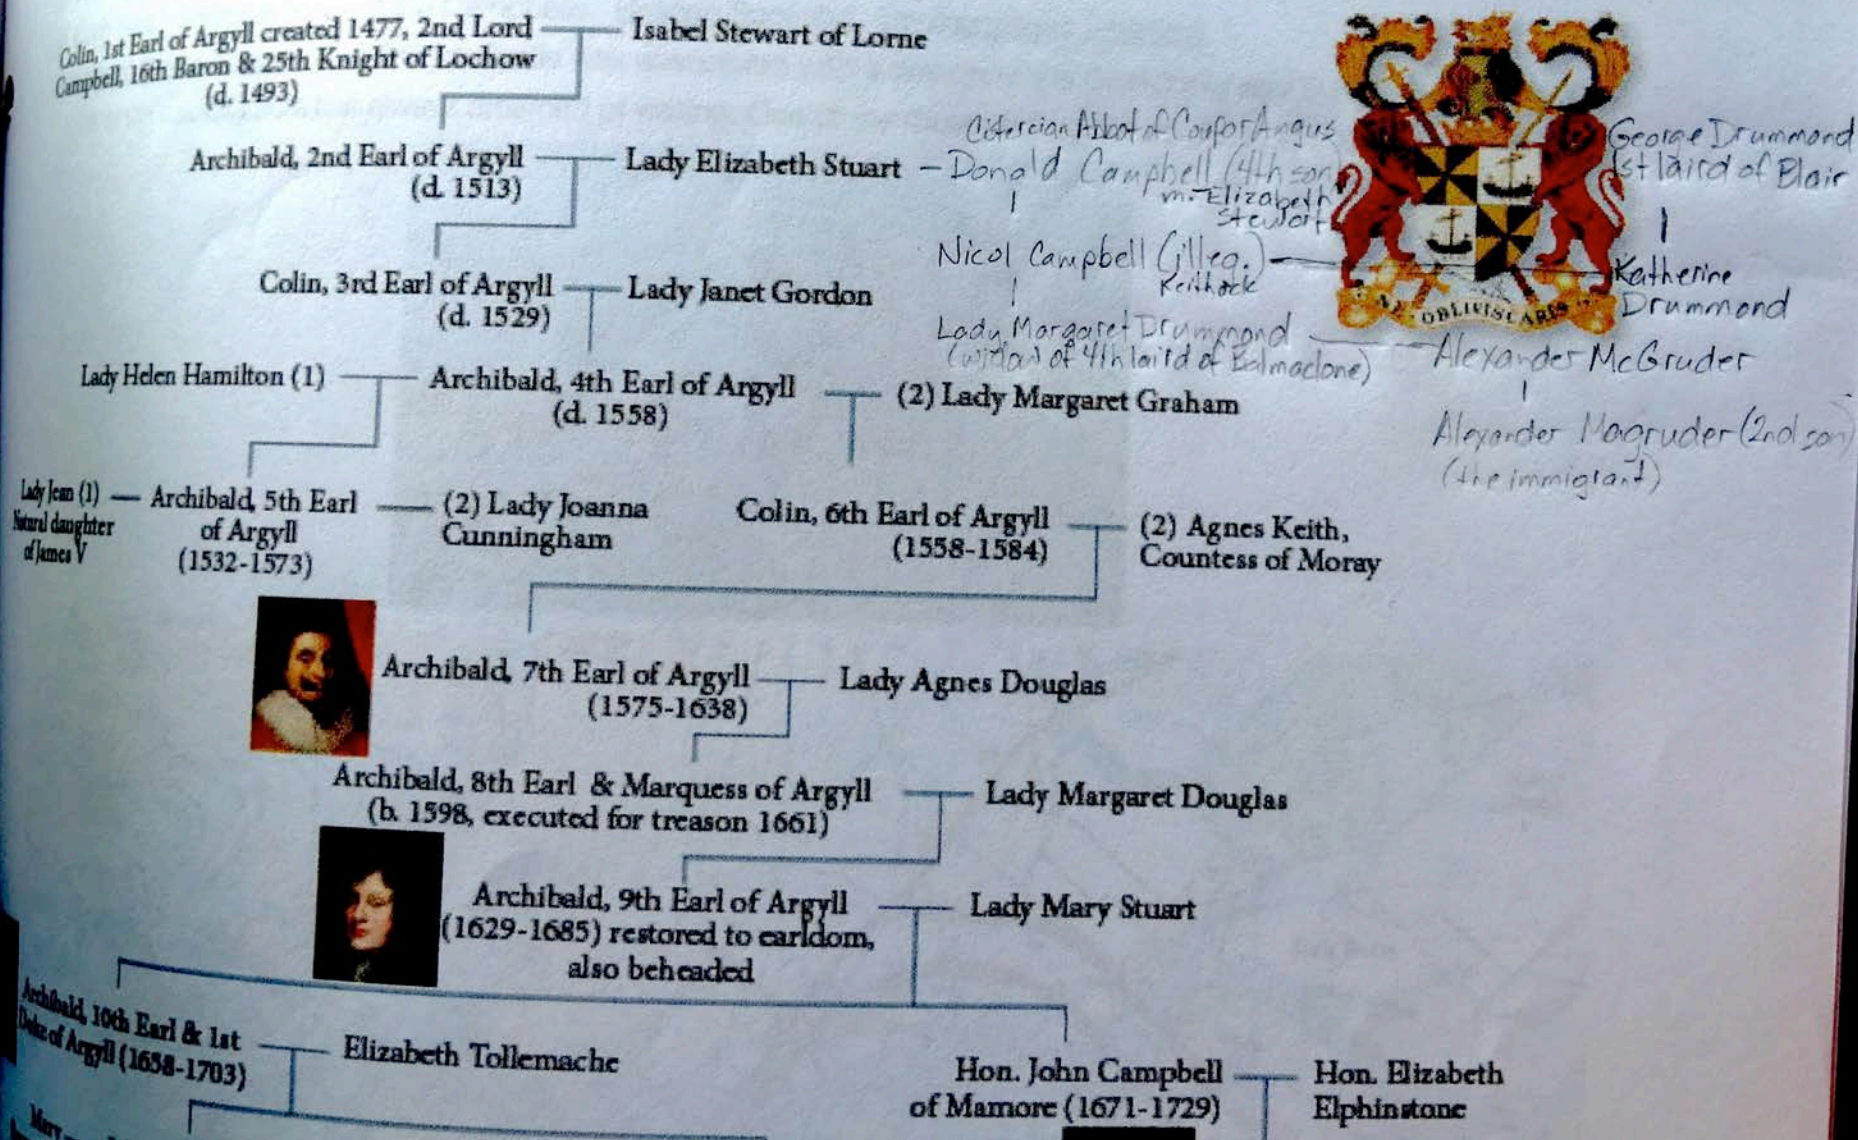 Colin, 1st Earl of Argyll created 1477, 2nd Lord
Campbell, 16th Baron & 25th Knight of Lochow
(d. 1493)
Isabel Stewart of Lorne
Archibald, 2nd Earl of Argyll
(d. 1513)
Lady Elizabeth Stuart
Cistercian Abbot of Coupor Angus
– Donald Campbell (4th son)
m. Elizabeth
Stewart
George Drummond
1st laird of Blair
Nicol Campbell (illeg.)
Keithock
Katherine
Drummond
NE OBLIVISCARIS
Colin, 3rd Earl of Argyll
(d. 1529)
Lady Janet Gordon
Lady Margaret Drummond
(widow of 4th laird of Balmaclone)
Alexander McGruder
Alexander Magruder (2nd son)
(the immigrant)
Lady Helen Hamilton (1)
Archibald, 4th Earl of Argyll
(d. 1558)
(2) Lady Margaret Graham
Lady Jean (1)
Natural daughter
of James V
Archibald, 5th Earl
of Argyll
(1532-1573)
(2) Lady Joanna
Cunningham
Colin, 6th Earl of Argyll
(1558-1584)
(2) Agnes Keith,
Countess of Moray
Archibald, 7th Earl of Argyll
(1575-1638)
Lady Agnes Douglas
Archibald, 8th Earl & Marquess of Argyll
(b. 1598, executed for treason 1661)
Lady Margaret Douglas
Archibald, 9th Earl of Argyll
(1629-1685) restored to earldom,
also beheaded
Lady Mary Stuart
Archibald, 10th Earl & 1st
Duke of Argyll (1658-1703)
Elizabeth Tollemache
Hon. John Campbell
of Mamore (1671-1729)
Hon. Elizabeth
Elphinstone
Mary